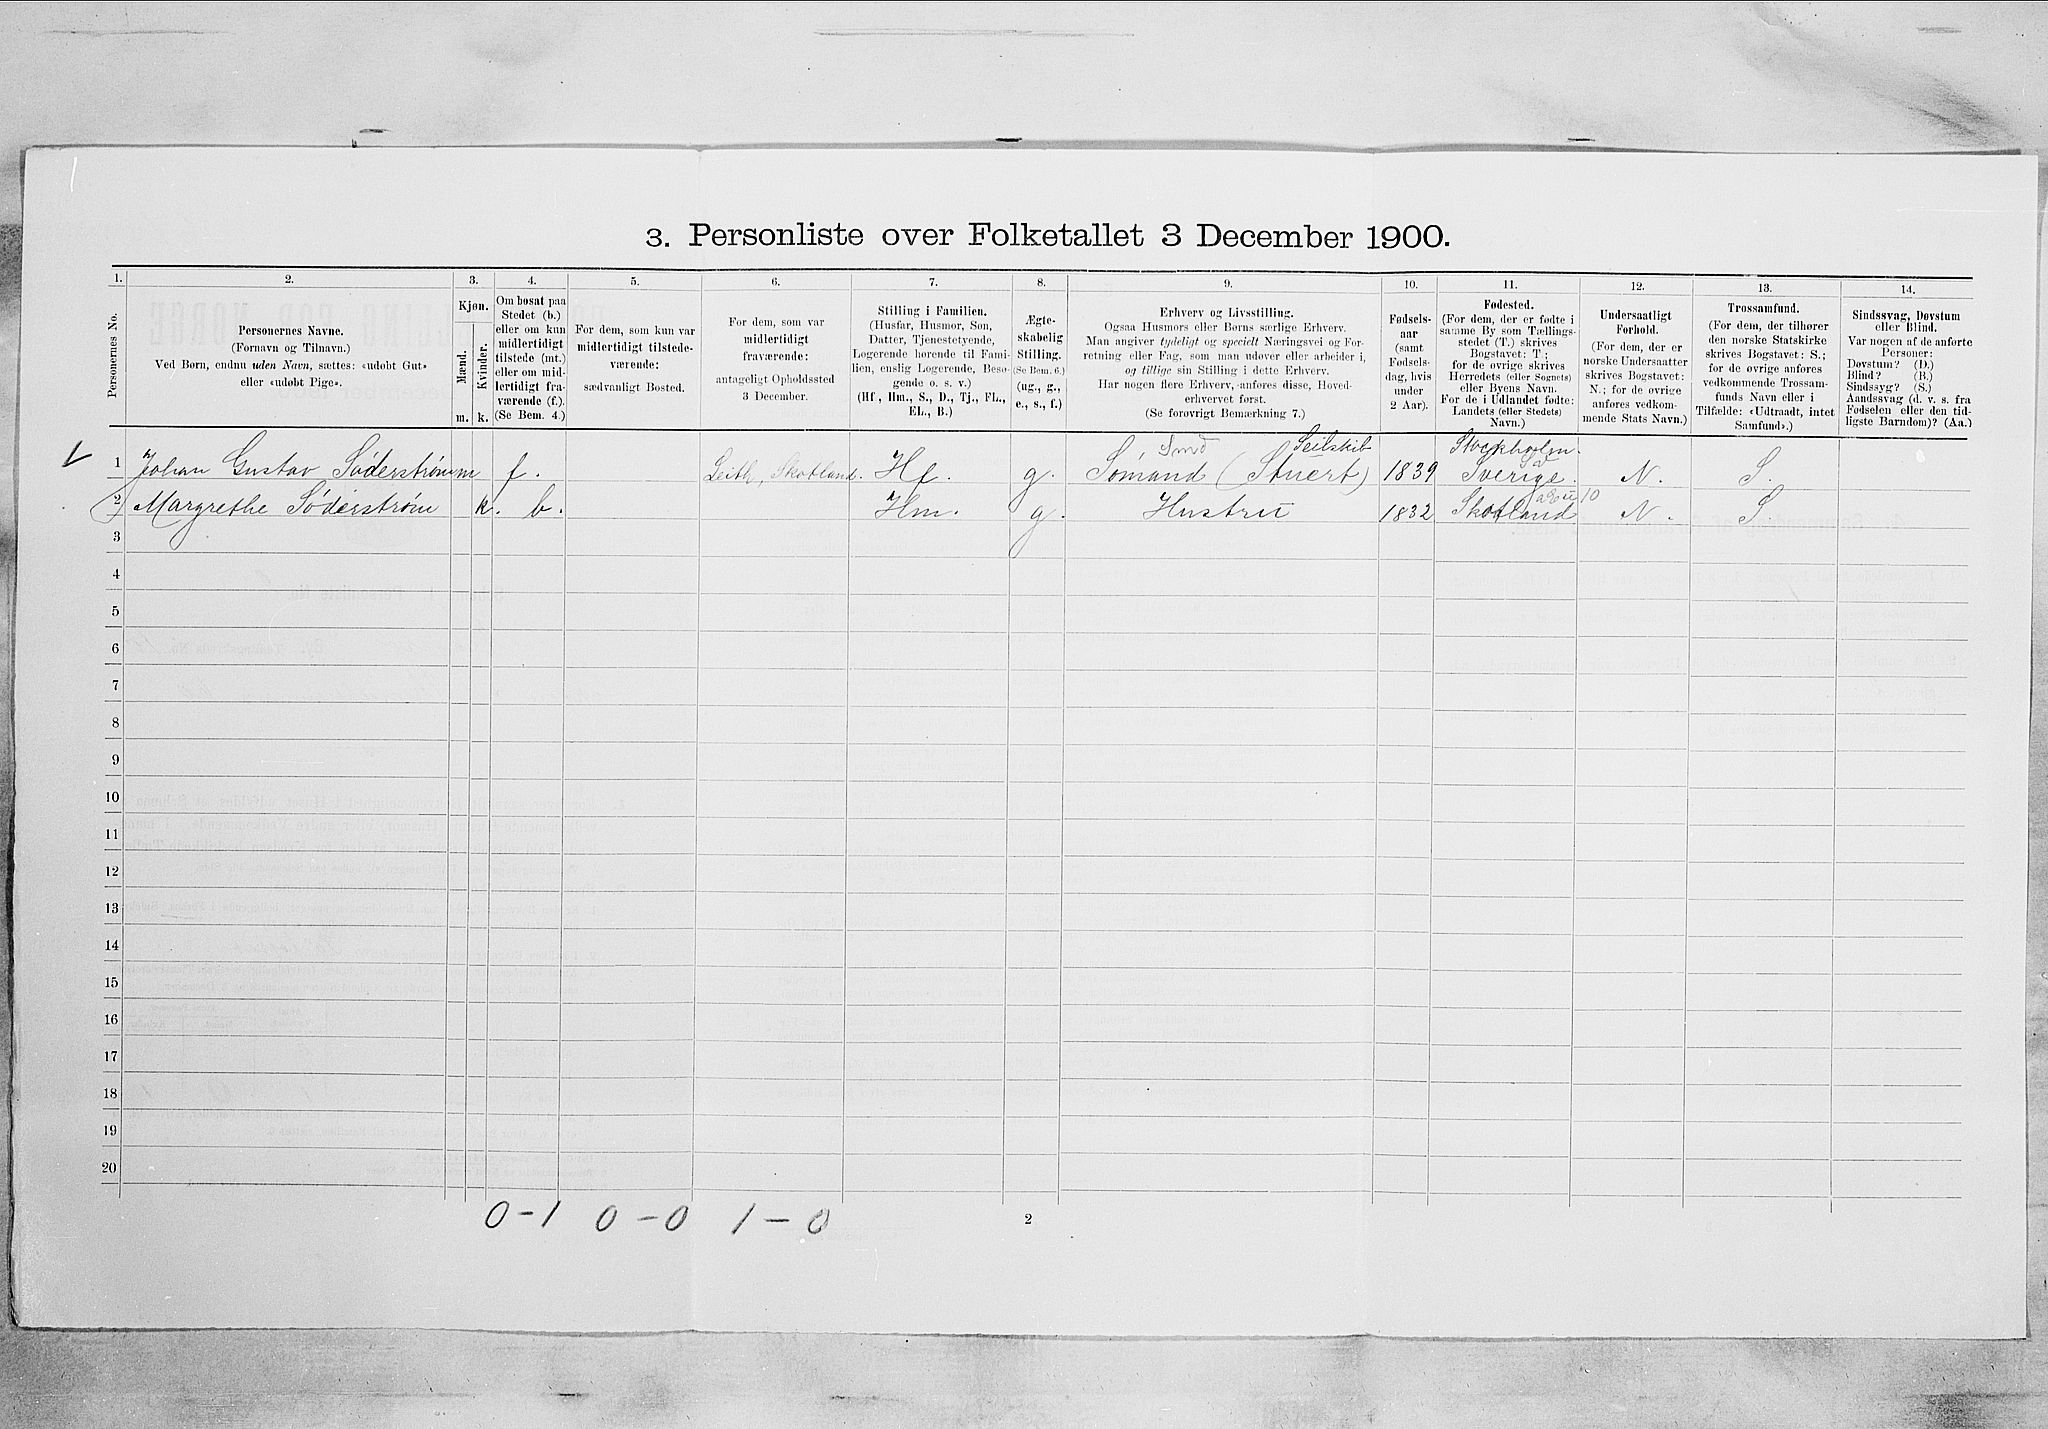 3. Personliste over Folketallet 3 December 1900.
1. 2. 3. 4. 5. 6. 7. 8. 9. 10. 11. 12. 13. 14.
Personernes No.
Personernes Navne.
(Fornavn og Tilnavn.)
Ved Børn, endnu uden Navn, sættes: «udøbt Gut»
eller «udøbt Pige».
Kjøn.
Mænd.
Kvinder.
m. k.
Om bosat paa
Stedet (b.)
eller om kun
midlertidigt
tilstede (mt.)
eller om mid-
lertidigt fra-
værende (f.).
(Se Bem. 4.)
For dem, som kun var
midlertidigt tilstede-
værende:
sædvanligt Bosted.
For dem, som var
midlertidigt
fraværende:
antageligt Opholdssted
3 December.
Stilling i Familien.
(Husfar, Husmor, Søn,
Datter, Tjenestetyende,
Logerende hørende til Fami-
lien, enslig Logerende, Besø-
gende o. s. v.)
(Hf., Hm., S., D., Tj., FL.,
EL., B.)
Ægte-
skabelig
Stilling.
(Se Bem. 6.)
(ug., g.,
e., s., f.)
Erhverv og Livsstilling.
Ogsaa Husmors eller Børns særlige Erhverv.
Man angiver tydeligt og specielt Næringsvei og For-
retning eller Fag, som man udøver eller arbeider i,
og tillige sin Stilling i dette Erhverv.
Har nogen flere Erhverv, anføres disse, Hoved-
erhvervet først.
(Se forøvrigt Bemærkning 7.)
Fødsels-
aar
(samt
Fødsels-
dag, hvis
under
2 Aar).
Fødested.
(For dem, der er fødte i
samme By som Tællings-
stedet (T.) skrives
Bogstavet: T;
for de øvrige skrives
Herredets (eller Sognets)
eller Byens Navn.
For de i Udlandet fødte:
Landets (eller Stedets)
Navn.)
Undersaatligt
Forhold.
(For dem, der er
norske Undersaatter
skrives Bogstavet:
N.; for de øvrige
anføres vedkom-
mende Stats Navn.)
Trossamfund.
(For dem, der tilhører
den norske Statskirke
skrives Bogstavet: S.;
for de øvrige anføres
vedkommende Trossam-
funds Navn eller i
Tilfælde: «Udtraadt, intet
Samfund».)
Sindssvag, Døvstum
eller Blind.
Var nogen af de anførte
Personer:
Døvstum? (D.)
Blind? (B.)
Sindssyg? (S.)
Aandssvag (d. v. s. fra
Fødselen eller den tid-
ligste Barndom)? (Aa.)
Smd Seilskib Stockholm
1 Johan Gustav Söderström m f. Leith, Skotland. Hf. g. Sømand (Stuert) 1839 Sverige. N. S.
2 Margrethe Söderstrøm k. b. Hm. g. Hustru 1832 Skotland 10 N. S.
3
4
5
6
7
8
9
10
11
12
13
14
15
16
17
18
19
20
0-1 0-0 1-0
2